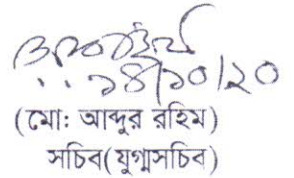 ১৪/১০/২০
(মো: আব্দুর রহিম)
সচিব(যুগ্মসচিব)